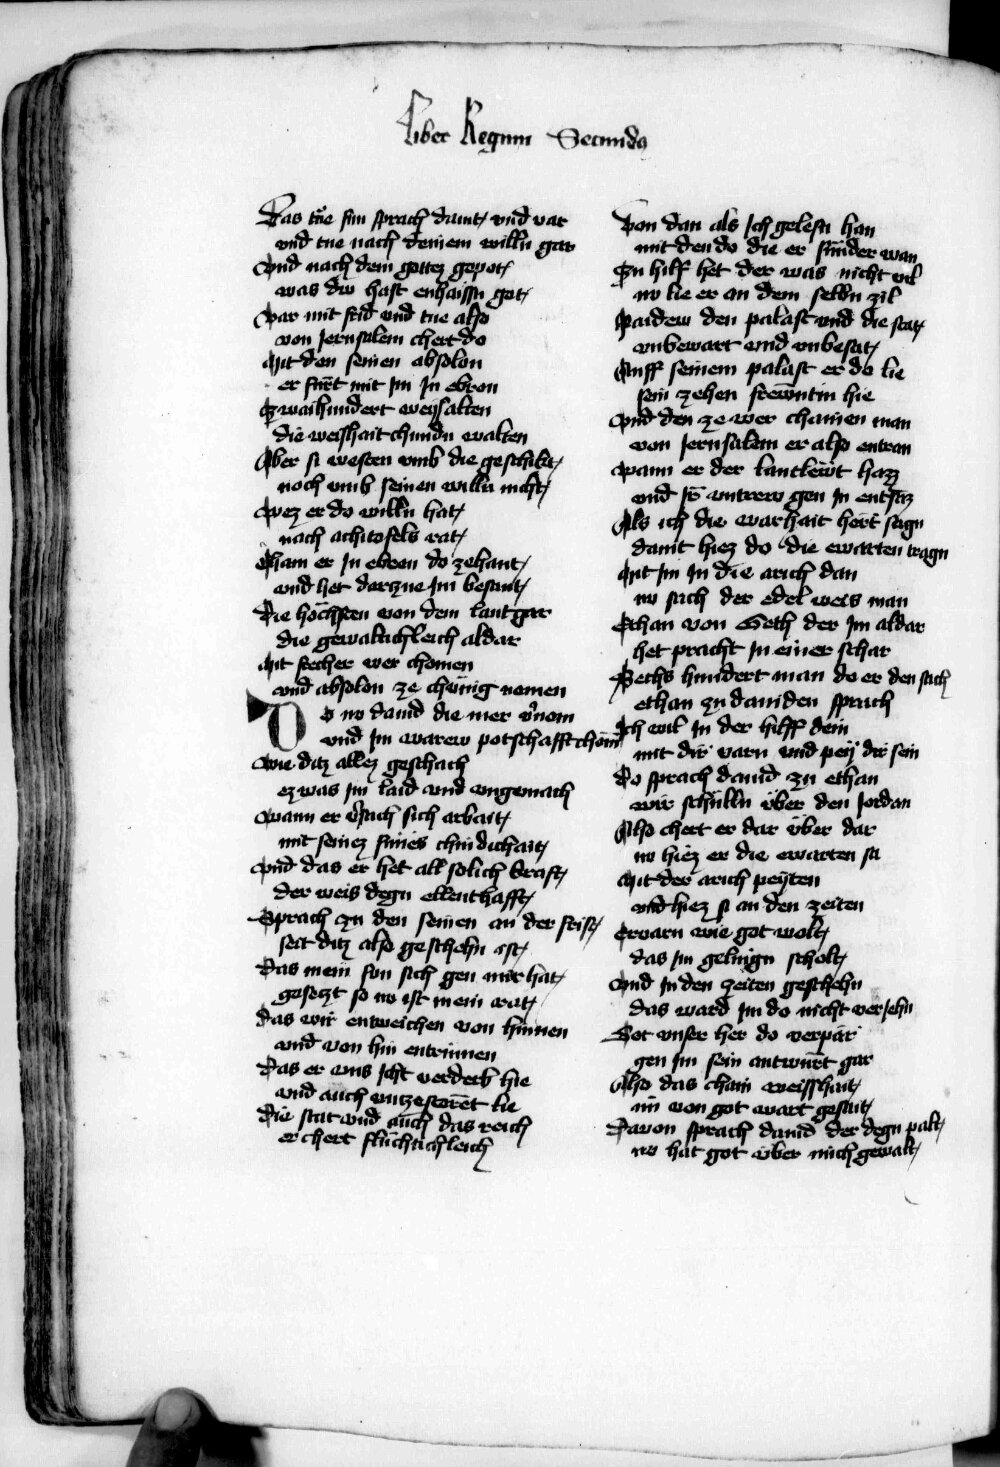 Liber Regum Secundus
Das tue sun sprach dauit vnd var
vnd tue nach deinem willn gar
Vnd nach dem gottez gepot
was dw hast enhaissn got
Var mit frid vnd tue also
von Jerusalem chert do
Mit den seinen absolon
er fürt mit Im In ebron
Zwaihundert weysalten
die weisshait chundn walten
Aber si westen vmb die geschikt
noch vmb seinen willn nicht
Wez er do willn hat
nach achitofels rat
Cham er In ebron do zehant
vnd het darzue Im besant
Die höchsten von dem lant gar
die gewaltichleich aldar
Mit stecher wer chomen
vnd absolon ze chünig nomen
Do nv dauid die mer v'nam
vnd Im warew potschafft cham
Wie ditz allez geschach
ez was Im laid vnd vngemach
Wann er v'sach sich arbait
mit seinez sunes chindichait
Vnd das er het all solich kraft
der weis degn ellenthafft
Sprach zu den seinen an der frist
seit ditz also geschehn ist
Das mein sun sich gen mir hat
gesetzt so nv ist mein rat
das wir entweichen von hinnen
vnd von hin entrinnen
Das er vns Icht verderb hie
vnd auch vnzestorët lie
Die stat vnd auch das reich
er chert fluchtichleich
Von dan als Ich gelesn han
mit den do die er sunder wan
Zu hilf het der was nicht vil
nv lie er an dem selbn zil
Paidew den palast vnd die stat
vnbewart vnd vnbesat
Auff seinem palast er do lie
sein zehen frewntin hie
Vnd den ze wer chainen man
von Jerusalem er also entran
Wann er der lantlewt haz
vnd Ir vntrew gen In entsaz
Als ich die warhait hört sagn
damit hiez do die ewarten tragn
Mit Im In die arich dan
nv sach der edel weis man
Ethan von Geth der Im aldar
het pracht In einer schar
Sechs hundert man do er den sach
ethan zu dauiden sprach
Ich wil In der hilff dein
mit dir varn vnd pey dir sein
Do sprach dauid zu ethan
wir schülln über den Jordan
Also chert er dar über dar
nv hiez er die ewarten sa
Mit der arich peyten
vnd hiez si an den zeiten
Ervarn wie got wolt
das Im gelingn scholt
Vnd In den zeiten geschehn
das ward Im do nicht verJehn
Got vnser her do verpar
gen Im sein antwürt gar
Also das chain weisshait
im von got wart gesait
Davon sprach dauid der degn palt
nv hat got über mich gewalt